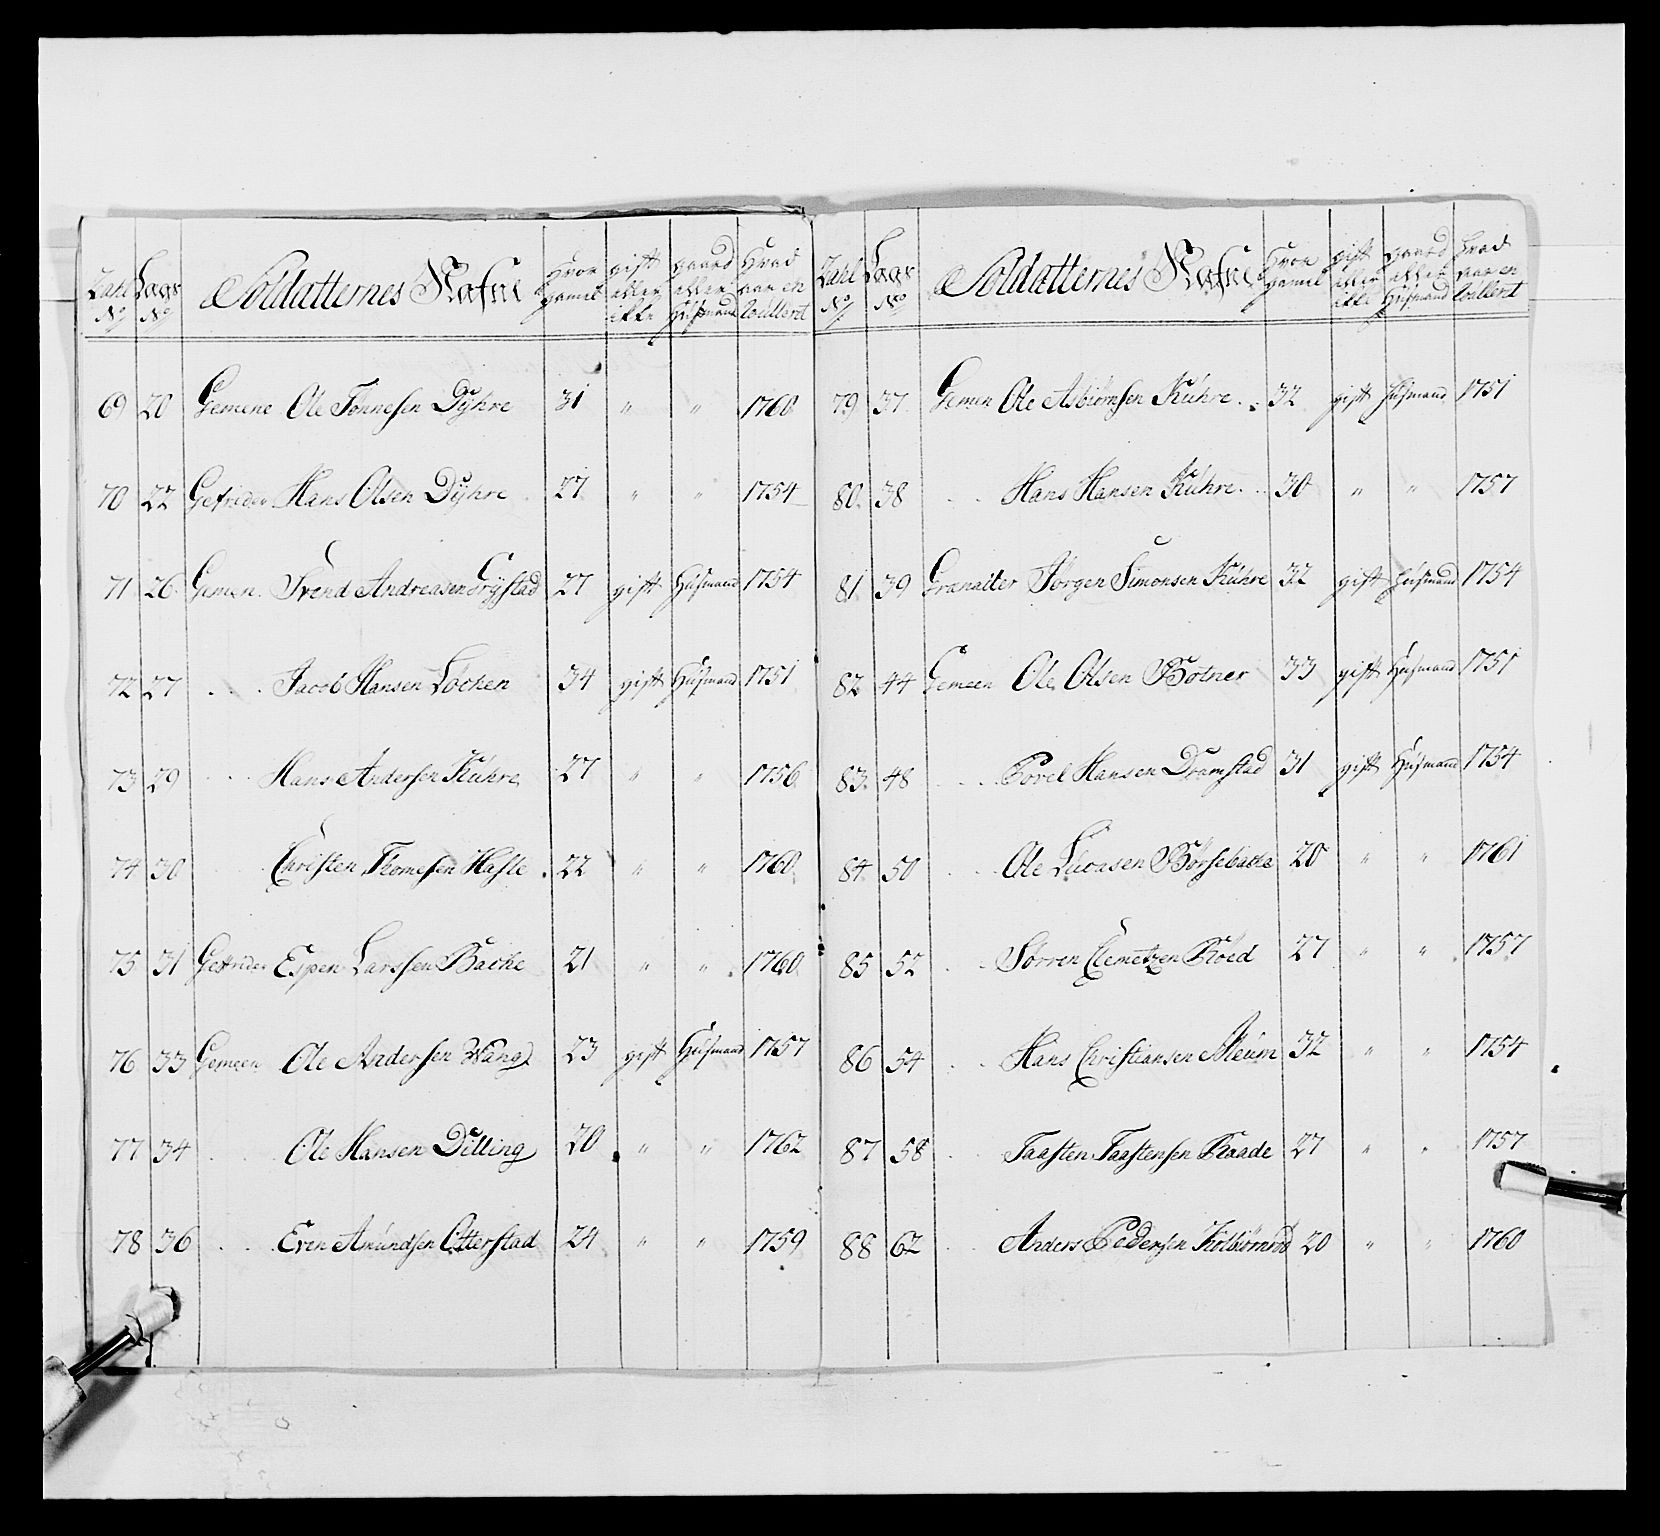 Tahl No Lægs No Soldatternes Nafne Hvor gamel gift eller ikke gaard eller Husmand Hvad aar en rullert
69 20 Gemene Ole Tønnesen Dÿhre 31 " " 1760
70 22 Gefrider Hans Olsen Dÿhre 27 " " 1754
71 26 Gemen Svend Andreasen Grÿstad 27 gift Husmand 1754
72 27 . . . Jacob Hansen Löcken 34 gift Husmand 1751
73 29 . . . Hans Andersen Kuhre 27 " " 1756
74 30 . . . Christen Thomesen Hasle 22 " " 1760
75 31 Gefrider Espen Larssen Backe 21 " " 1760
76 33 Gemeen Ole Andersen Wang 23 gift Husmand 1757
77 34 . . . Ole Hansen Dilling 20 " " 1762
78 36 . . . Even Amundsen Otterstad 24 " " 1759
Tahl No Lægs No Soldatternes Nafne Hvor gamel gift eller ikke gaard eller Husmand Hvad aar en rullert
79 37 Gemen Ole Asbiørnsen Kuhre 32 gift Husmand 1751
80 38 . . Hans Hansen Kuhre 30 " " 1757
81 39 Granatter Jørgen Simonsen Kuhre 32 gift Husmand 1754
82 44 Gemeen Ole Olsen Botner 33 gift Husmand 1751
83 48 . . . Povel Hansen Dramstad 31 gift Husmand 1754
84 50 . . . Ole Lucasen Børsebacke 20 " " 1761
85 52 . . Sørren Clemetzen Röed 27 " " 1757
86 54 . . Hans Christiansen Meum 32 " " 1754
87 58 . . Taasten Taastensen Raade 27 " " 1757
88 62 . . Anders Pedersen Kolbiørnröd 20 " " 1760